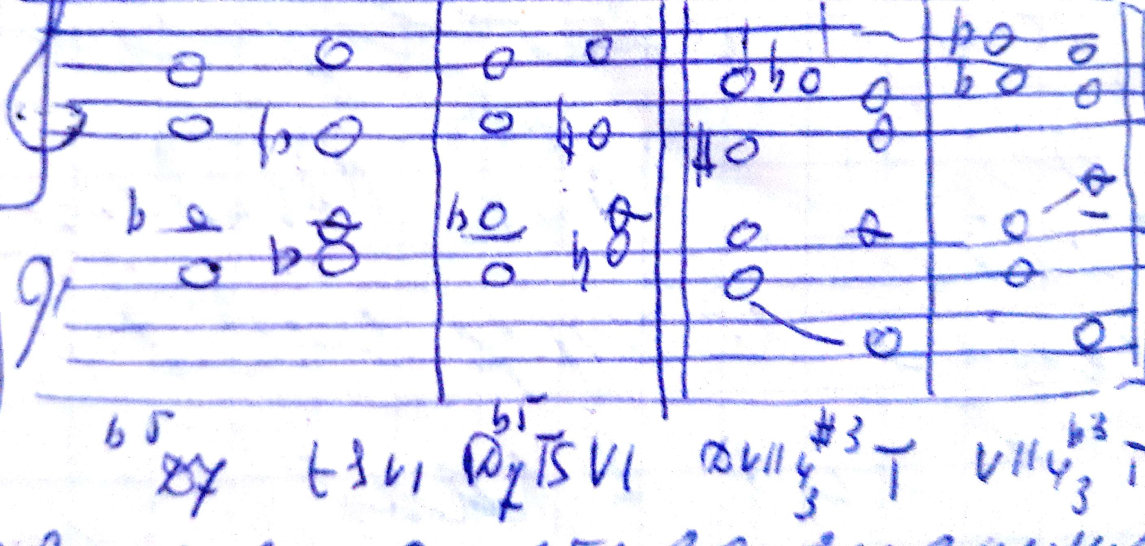 b5 D7 tSVI D7 b5 TSVI DVII43 #3 T VII43 b3 T